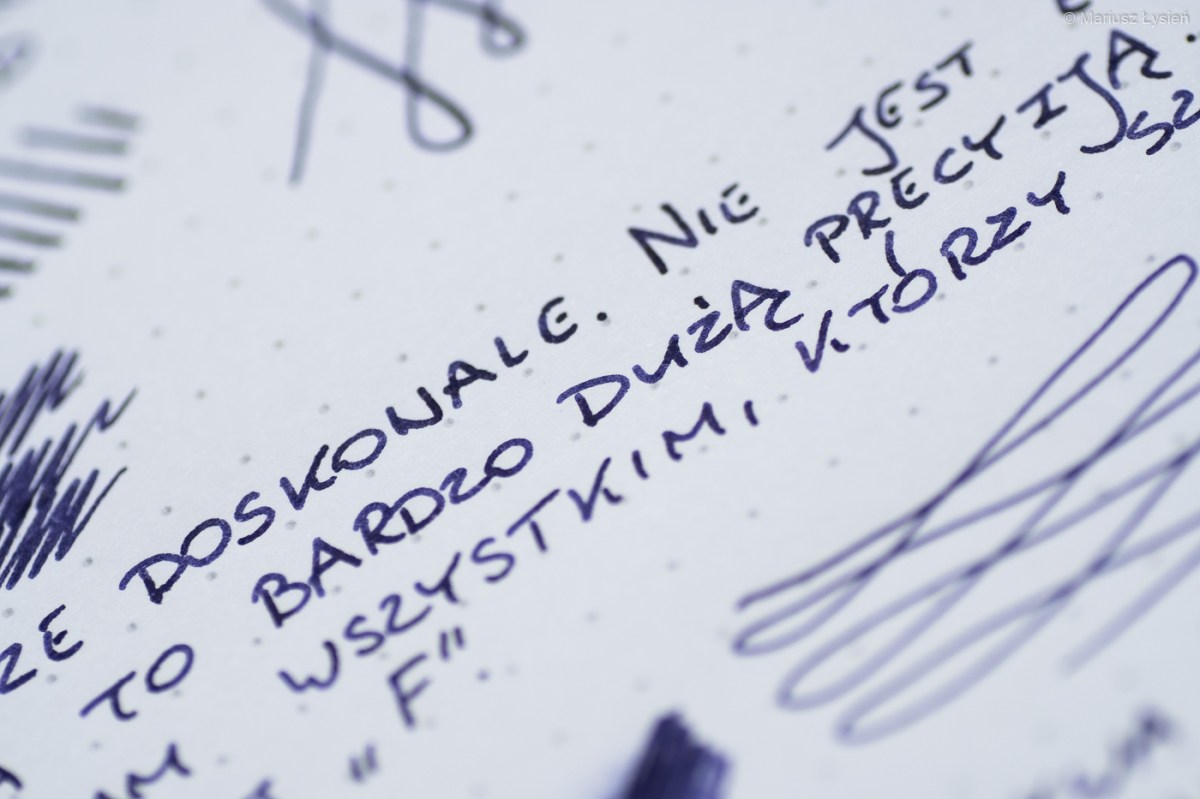 © Mariusz Łysień
ZE DOSKONALE. NIE JEST
TO BARDZO DUŻĄ PRECYIJĄ.
AM WSZYSTKIM, KTÓRZY SZ
„F”.